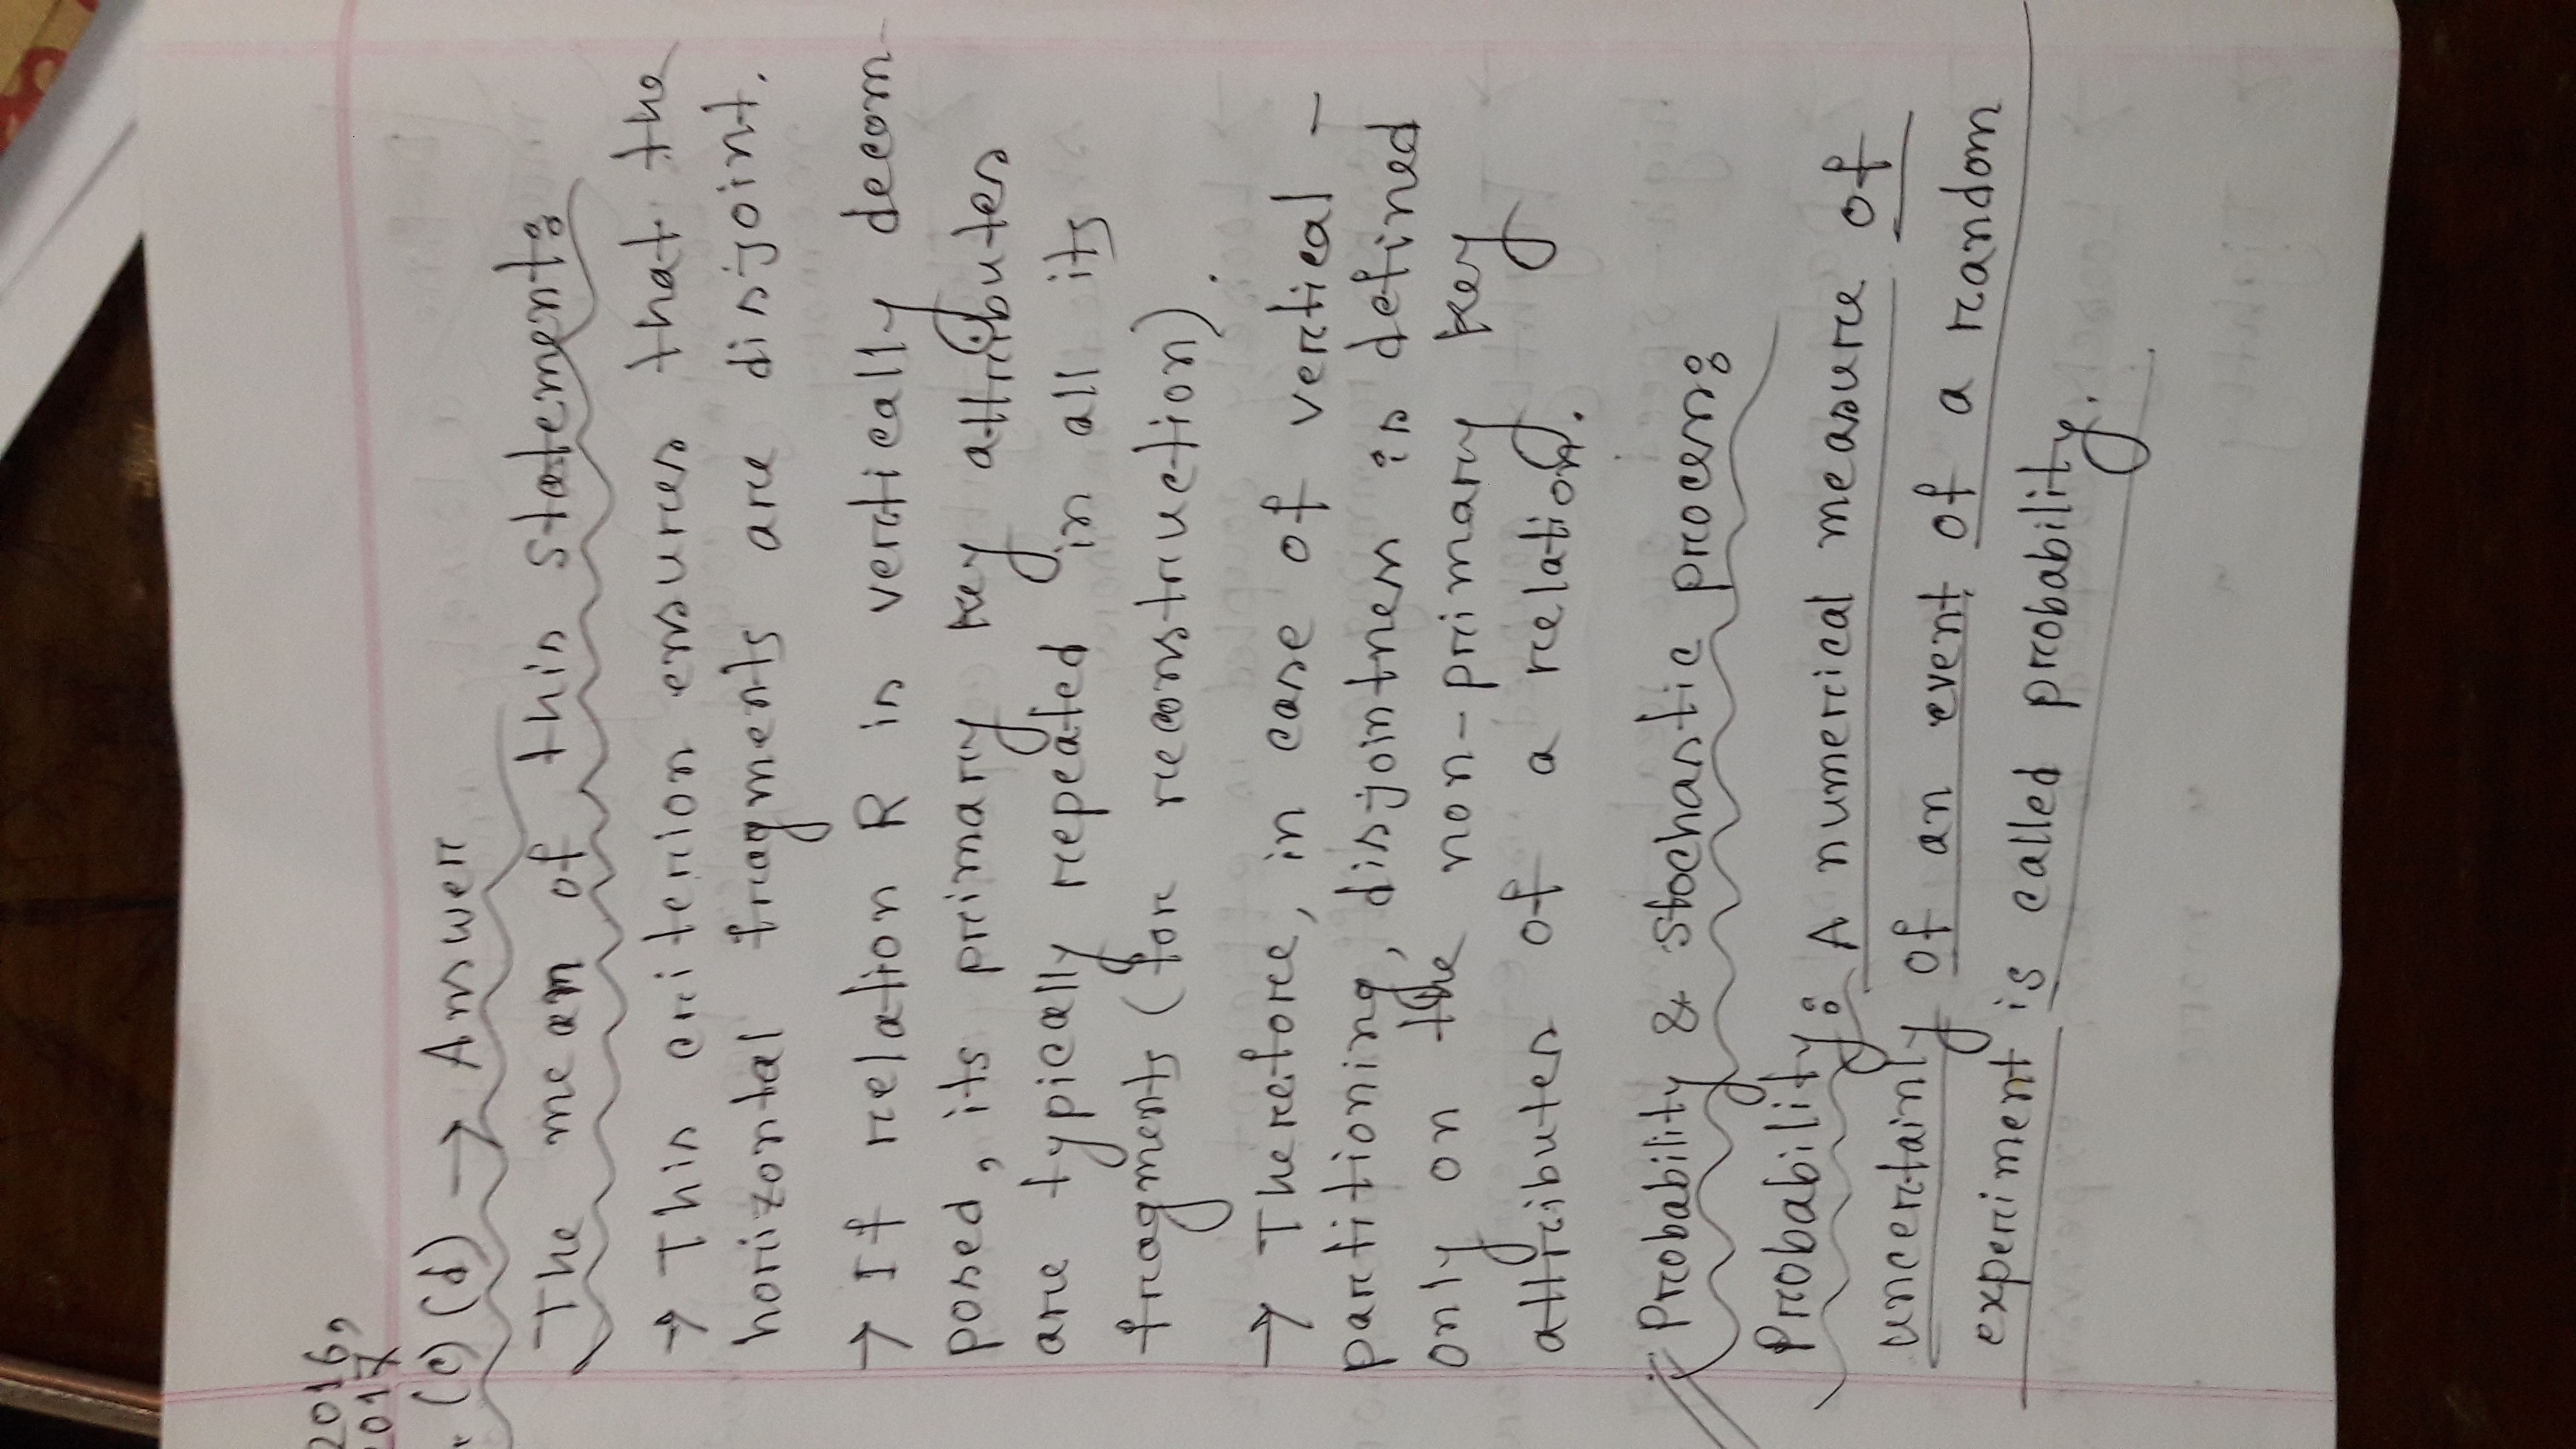 2016,
2017
(c) (d) → Answer
The mean of this statement:
→ This criterion ensures that the
horizontal fragments are disjoint.
→ If relation R is vertically decom-
posed, its primary key attributes
are typically repeated in all its
fragments (for reconstruction).
→ Therefore, in case of vertical -
partitioning, disjointness is defined
only on the non-primary key
attributes of a relation.
Probability & Stochastic process:
Probability: A numerical measure of
uncertainly of an event of a random
experiment is called probability.